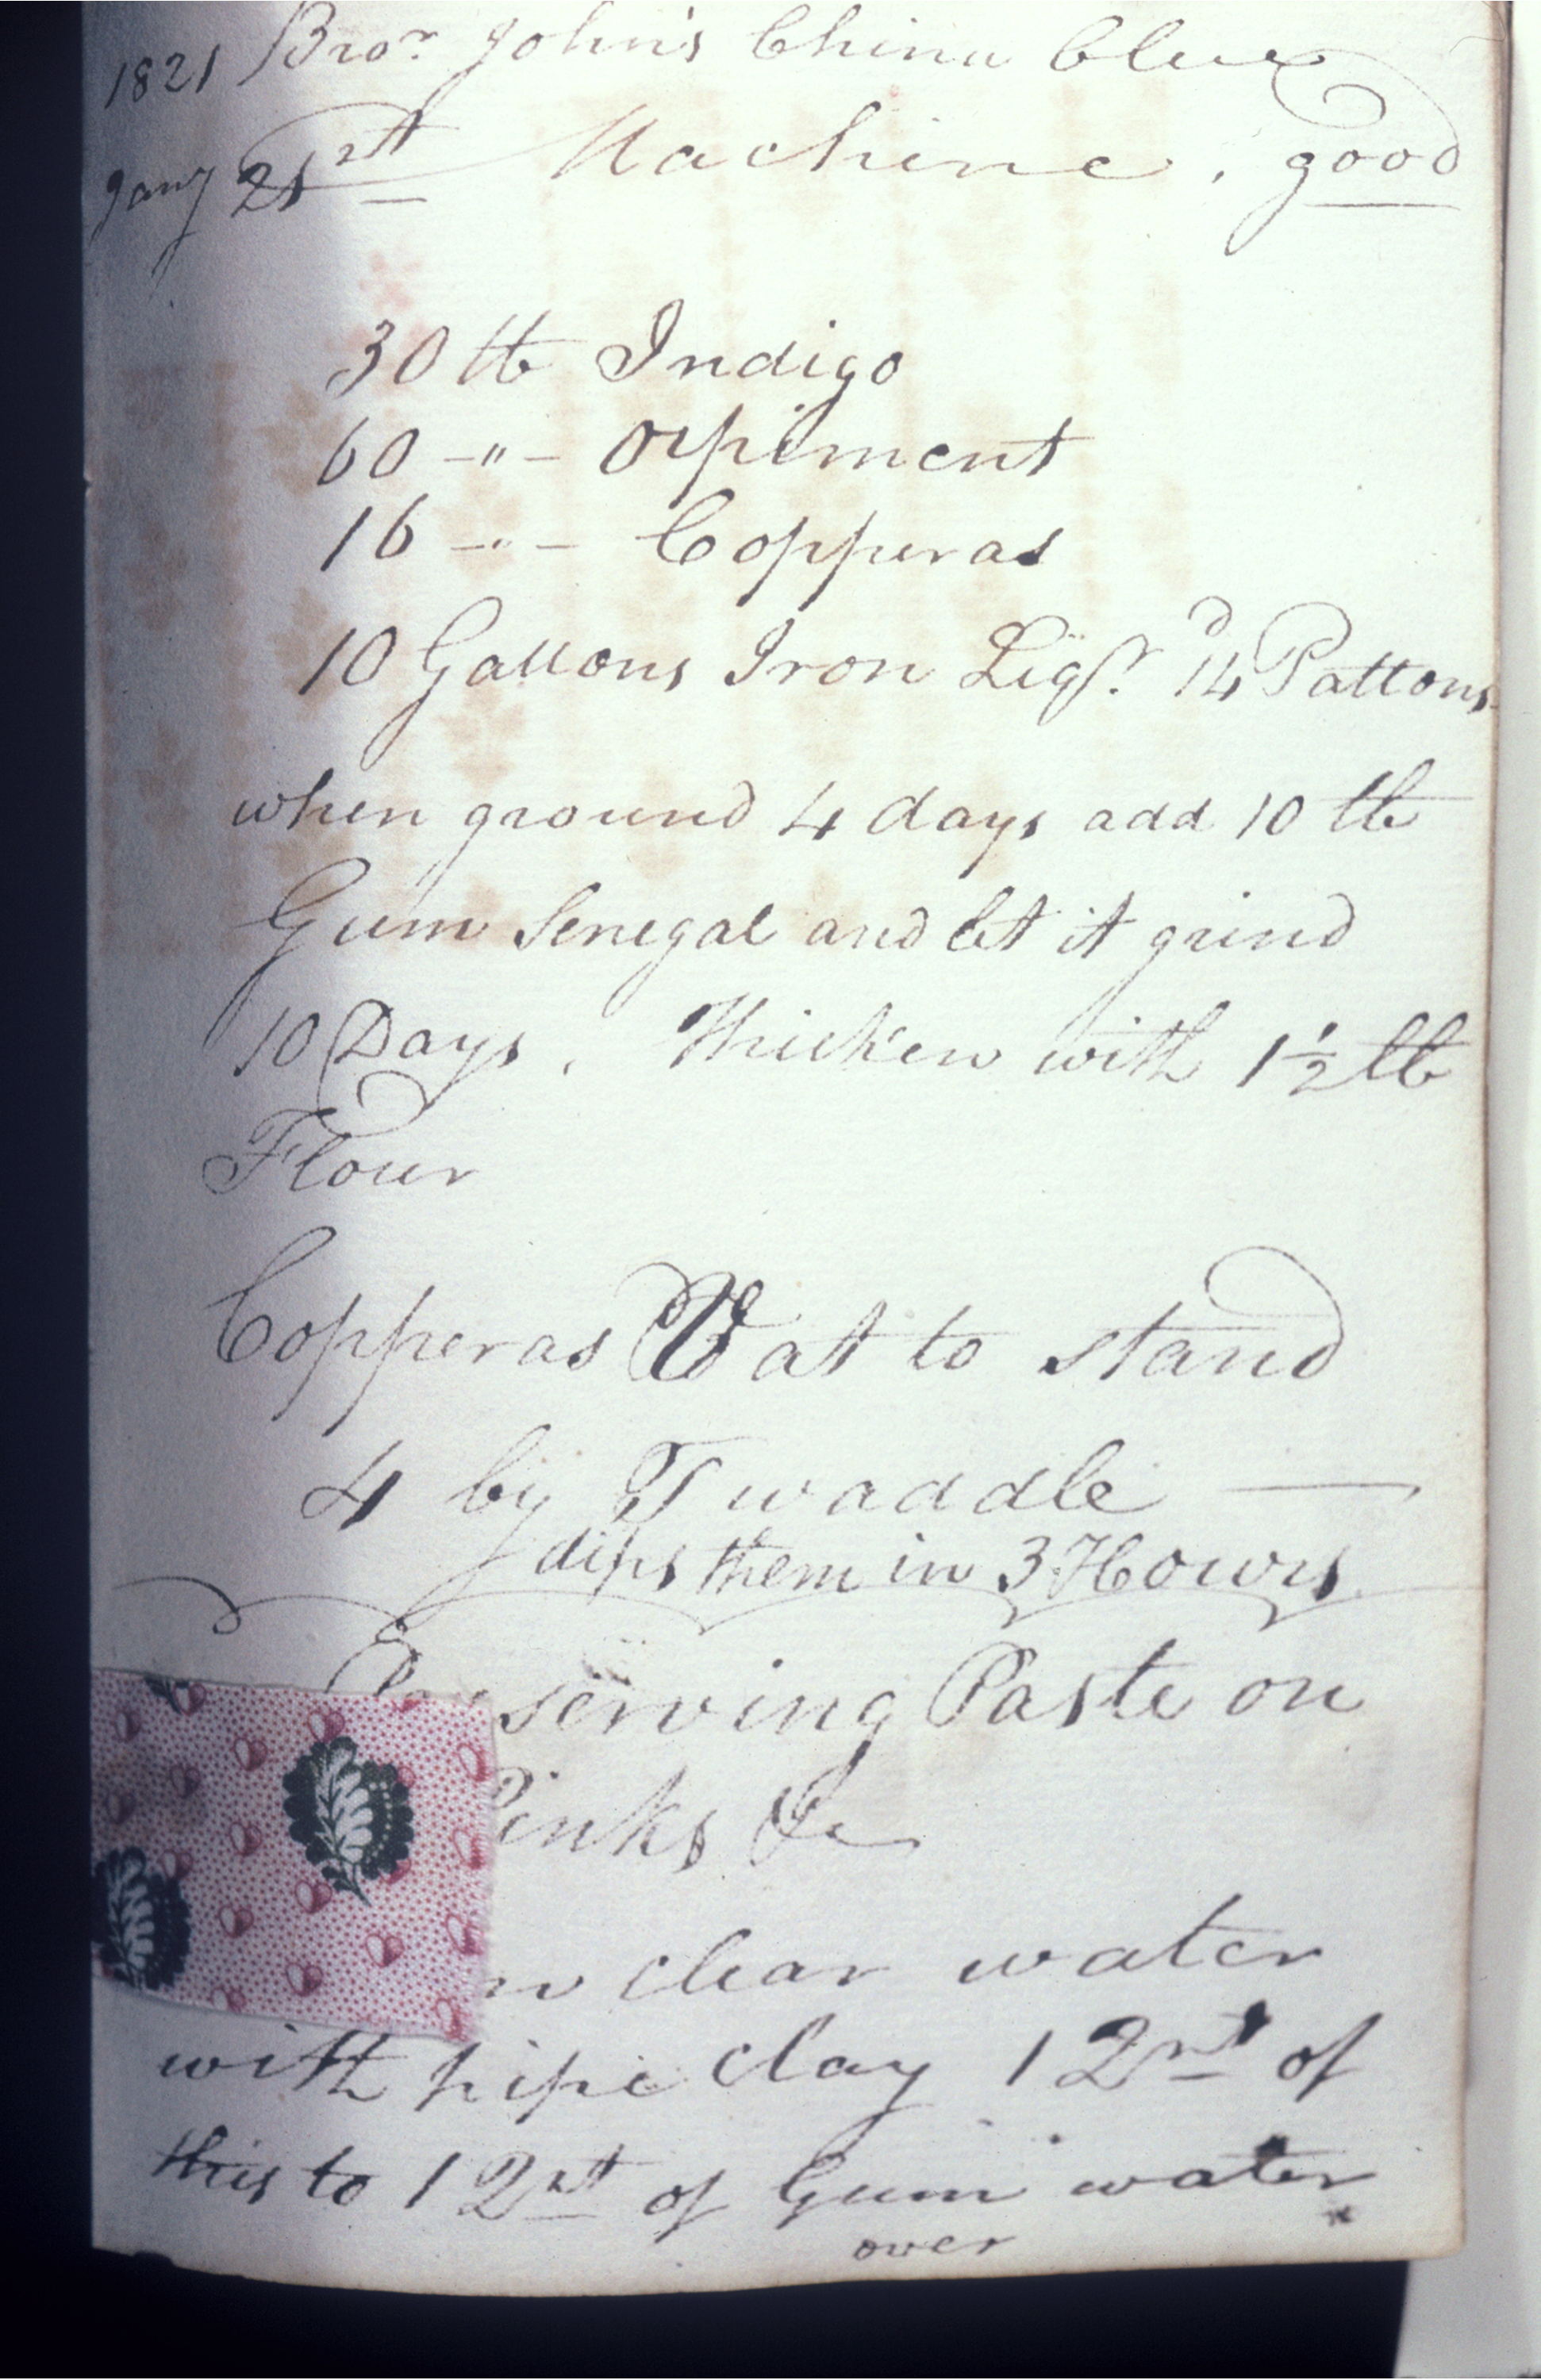 1821 Bror. John's China Blue
Jany 21st Machine, good
30 lb Indigo
60 -"- Orpiment
16 -"- Copperas
10 Gallons Iron Liqr. 14 Pattons
when ground 4 days add 10 lb
Gum Senegal and let it grind
10 Days. Thicken with 1½ lb
Flour
Copperas Vat to stand
4 by Twaddle —
dips them in 3 Hours
serving Paste on
inks &c
clear water
with pipe clay 1 2rt of
this to 1 2rt of Gum water
over *